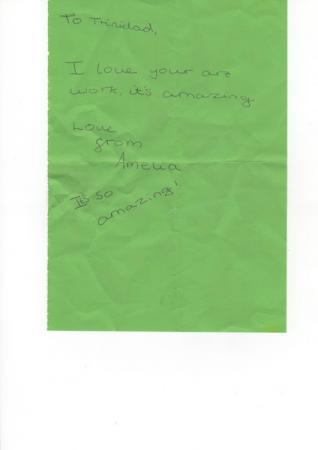 To Trinidad,
I love your are
work, it's amazing
Love
from
Amelia
It's so
amazing!